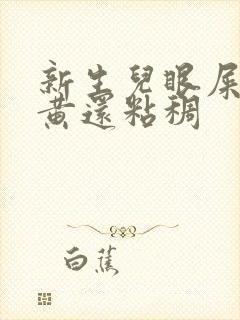 新生兒眼屎
黃還粘稠
白蕉